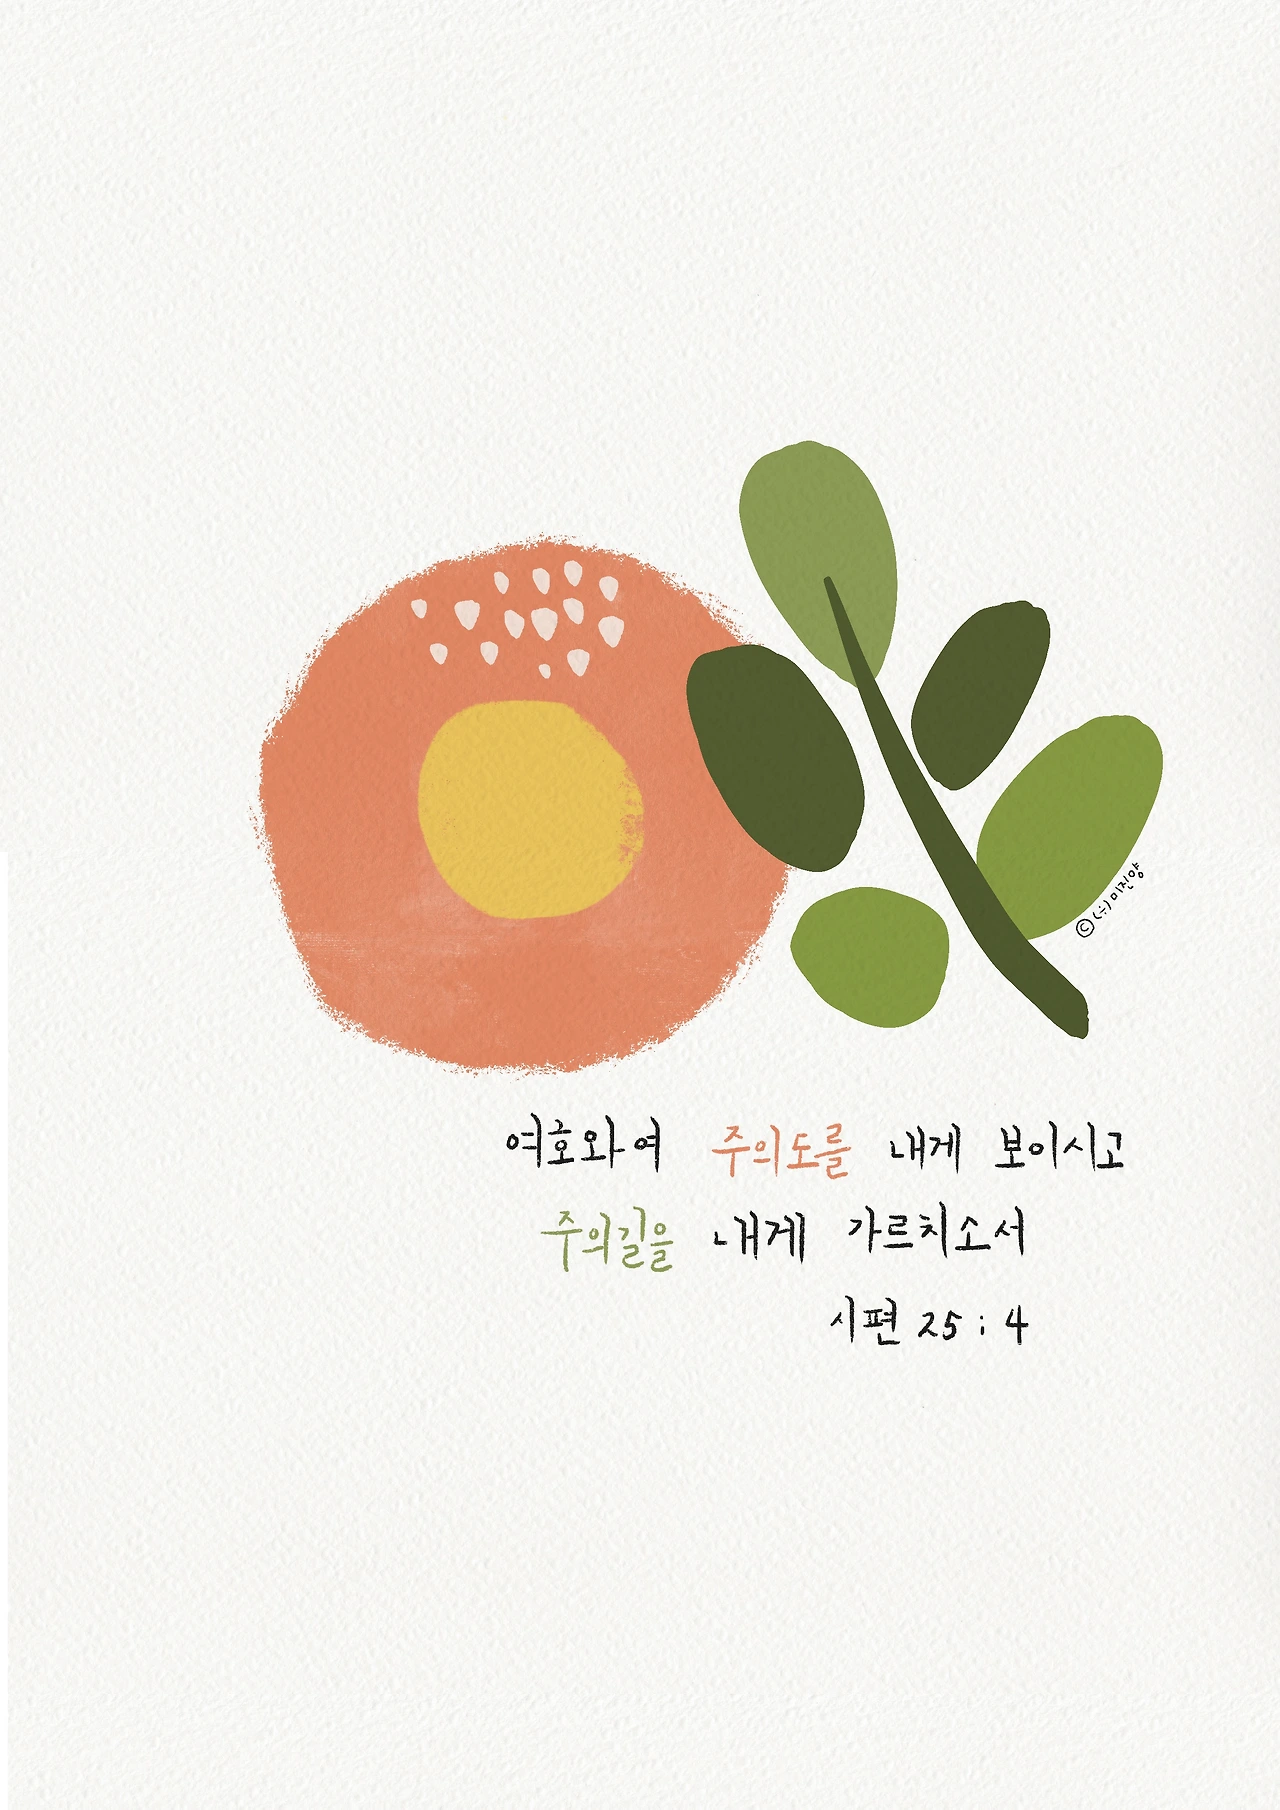 ⓒ(주)미진양
여호와여 주의도를 내게 보이시고
주의길을 내게 가르치소서
시편 25 : 4